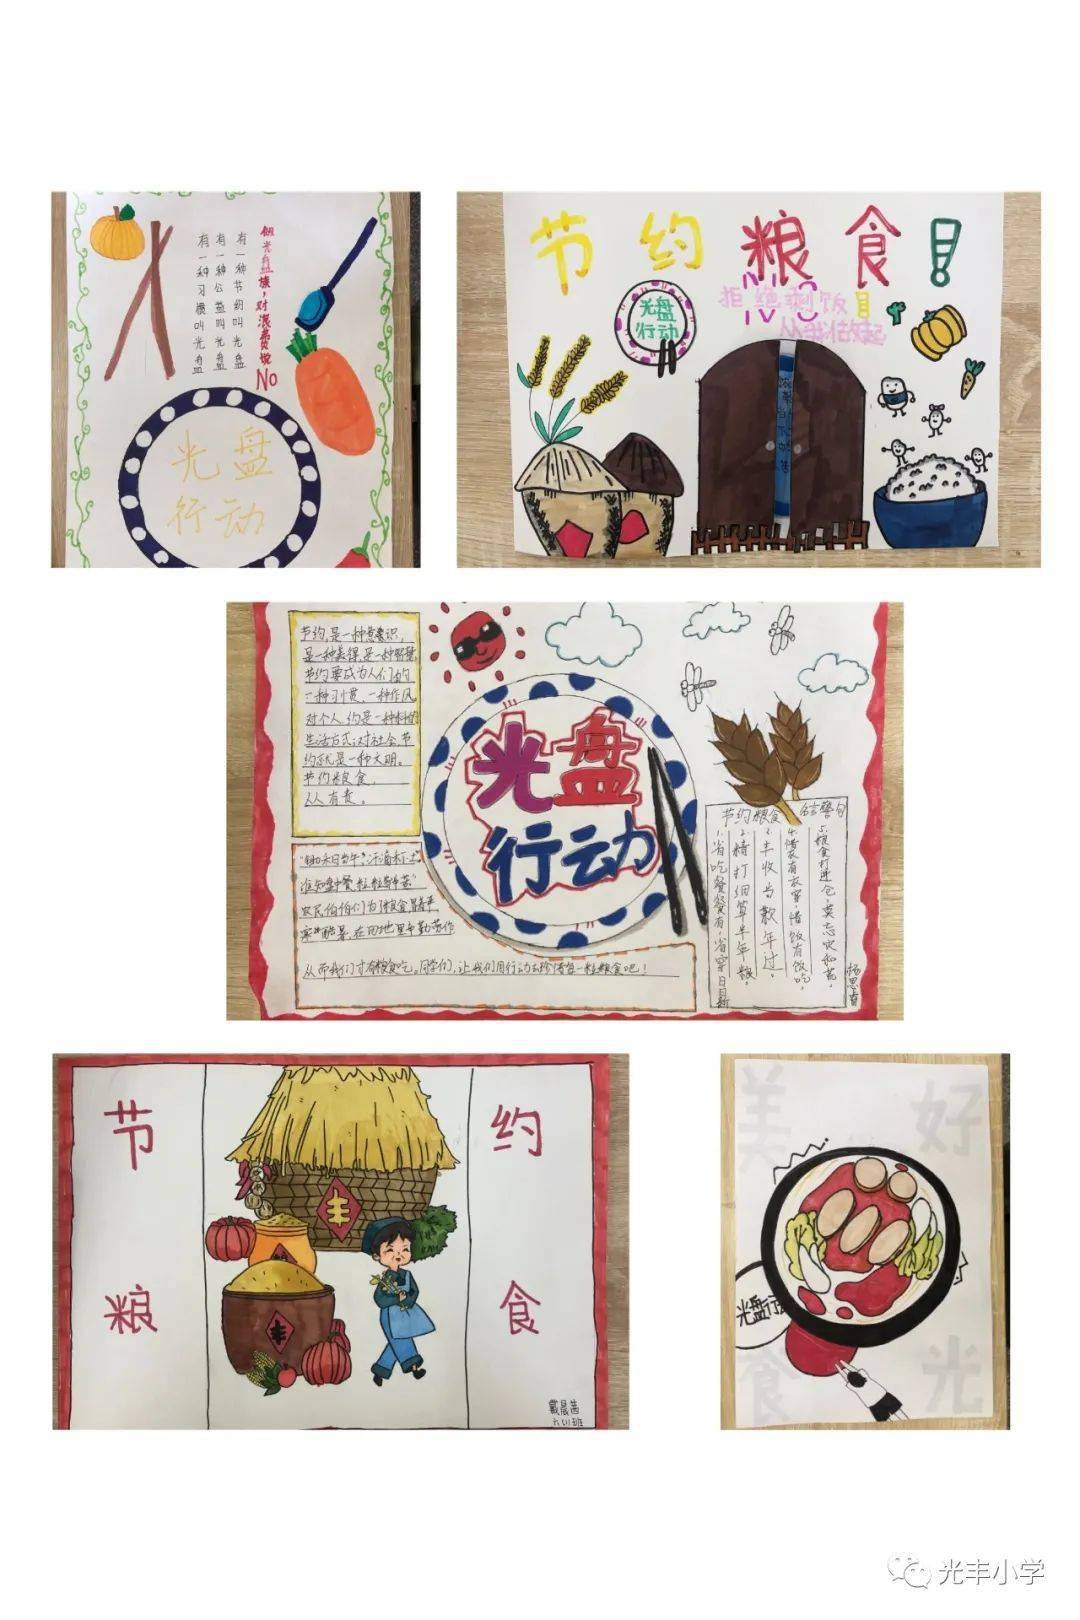 做光盘族，对浪费说NO
有一种节约叫光盘
有一种公益叫光盘
有一种习惯叫光盘
光盘
行动
节约粮食！
光盘
行动
拒绝剩饭
从我做起
节约,是一种意识,
节约要成为人们的
一种习惯,一种作风
生活方式;对社会,节
约就是一种文明。
节约粮食,
人人有责。
光盘
行动
"锄禾日当午,汗滴禾下土。
谁知盘中餐,粒粒皆辛苦"
农民伯伯们为了粮食
在田地里辛勤劳作
从而我们才有粮食吃。同学们,让我们用行动去珍惜每一粒粮食吧!
节约粮食 名言警句
1.省吃餐餐有,省穿日日新
2.精打细算半年粮。
3.丰收当歉年过。
4.惜衣有衣穿,惜饭有饭吃。
5.粮食打进仓,莫忘灾和荒。
杨思睿
节约
粮食
丰
丰
戴晨茜
六(1)班
美好
食光
光盘行
光丰小学